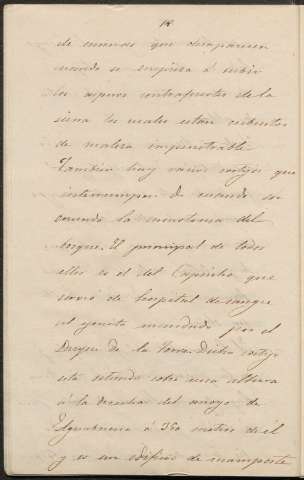 18
de encinas que desaparecen
cuando se empieza á subir
los ásperos contrafuertes de la
sierra los cuales están cubiertos
de maleza impenetrable.
También hay varios cortijos que
interrumpen de cuando en
cuando la monotonia del
bosque. El principal de todos
ellos es el del Capricho que
sirvió de hospital de sangre
al ejército mandado por el
Duque de la Torre. Dicho cortijo
está situado sobre una altura
á la derecha del arroyo de
á 350 metros de él
y es un edificio de mamposte